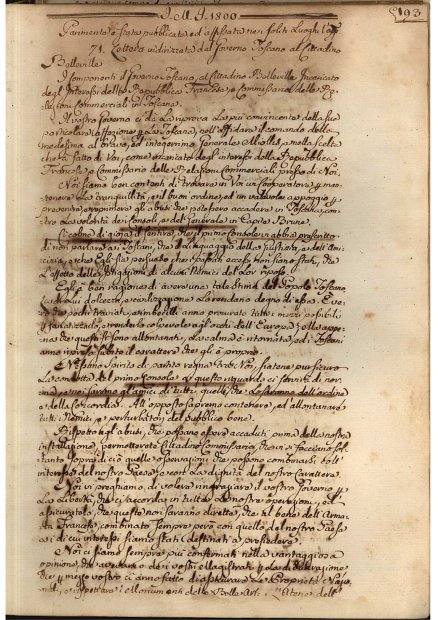 I. M. I. 1800
193
Parimente è stata pubblicata, ed affissata nei soliti Luoghi l'app.
71. Lettera indirizzata dal Governo Toscano al Cittadino
Belleville
I componenti il Governo Toscano, al Cittadino Belleville Incaricato
degli Interessi della Repubblica Francese, e Commissario delle Re-
lazioni Commerciali in Toscana.
Il vostro Governo ci dà la riprova la più convincente della sua
particolare affezione p. la Toscana, nell'affidare il comando della
medesima al bravo, ed integerrimo Generale Miollis, e nella scelta
che ha fatto di Voi, come incaricato degl'interessi della Repubblica
Francese, e Commissario delle Relazioni Commerciali presso di Noi.
Noi siamo ben contenti di trovare in Voi un Cooperatore p. man-
tenere la tranquillità, e il buon ordine, ed un valevole appoggio p.
prevenire, e reprimere gli abusi che potessero accadere in Toscana, con-
tro la volontà dei Consoli, e del Generale in Capite Brune.
Ci colma di gioja il sentire, che il primo Console vi abbia prescritto
di non parlare ai Toscani, che il Linguaggio della giustizia, e dell'Ami-
cizia, e che Egli sia persuaso che i passati eccessi non siano stati, che
l'effetto delle Istigazioni di alcuni Nemici del Lor riposo.
Egli à ben ragione di avere una tale stima del Popolo Toscano
la di lui dolcezza, e civilizzazione lo rendano degno di essa. È ve-
ro che pochi traviati, e imbecilli anno procurato tutti i mezzi possibili
p. fanatizzarlo, e renderlo colpevole agli occhi dell'Europa; ma appe-
na che questi si sono allontanati, la calma è ritornata, ed i Toscani
anno ripreso subito il carattere che gli è proprio.
Nessuno Spirito di partito regna frà di Noi, siatene pur sicuro
La condotta del primo Console a questo riguardo ci servirà di nor-
ma, e noi saremo gli amici di tutti quelli, che lo saranno dell'ordine
e della concordia. All'opposto sapremo contenere, ed allontanare
tutti i Nemici, e perturbatori del pubblico bene.
Rispetto agli abusi, che possano essere accaduti prima della nostra
installazione, permettete o Cittadino Commissario, che vi si facciano sol-
tanto sopra di ciò quelle osservazioni che possono combinarsi coll'
interesse del nostro Paese, e con la dignità del nostro Carattere.
Noi vi preghiamo di volere ringraziare il vostro Governo p.
la Libertà, che ci accorda in tutte le nostre operazioni, ed
assicuratelo, che queste non saranno dirette, che al bene dell'Arma-
ta Francese, combinato sempre però con quello del nostro Paese
ai di cui interessi siamo stati destinati a presiedere.
Noi ci siamo sempre più confermati nella vantaggiosa
opinione, che avevamo dei vostri Magistrati p. la dichiarazione
che p. mezzo vostro ci anno fatto di assicurare le Proprietà Nazio-
nali, e rispettare i Monumenti delle Belle Arti. L'Atene dell'